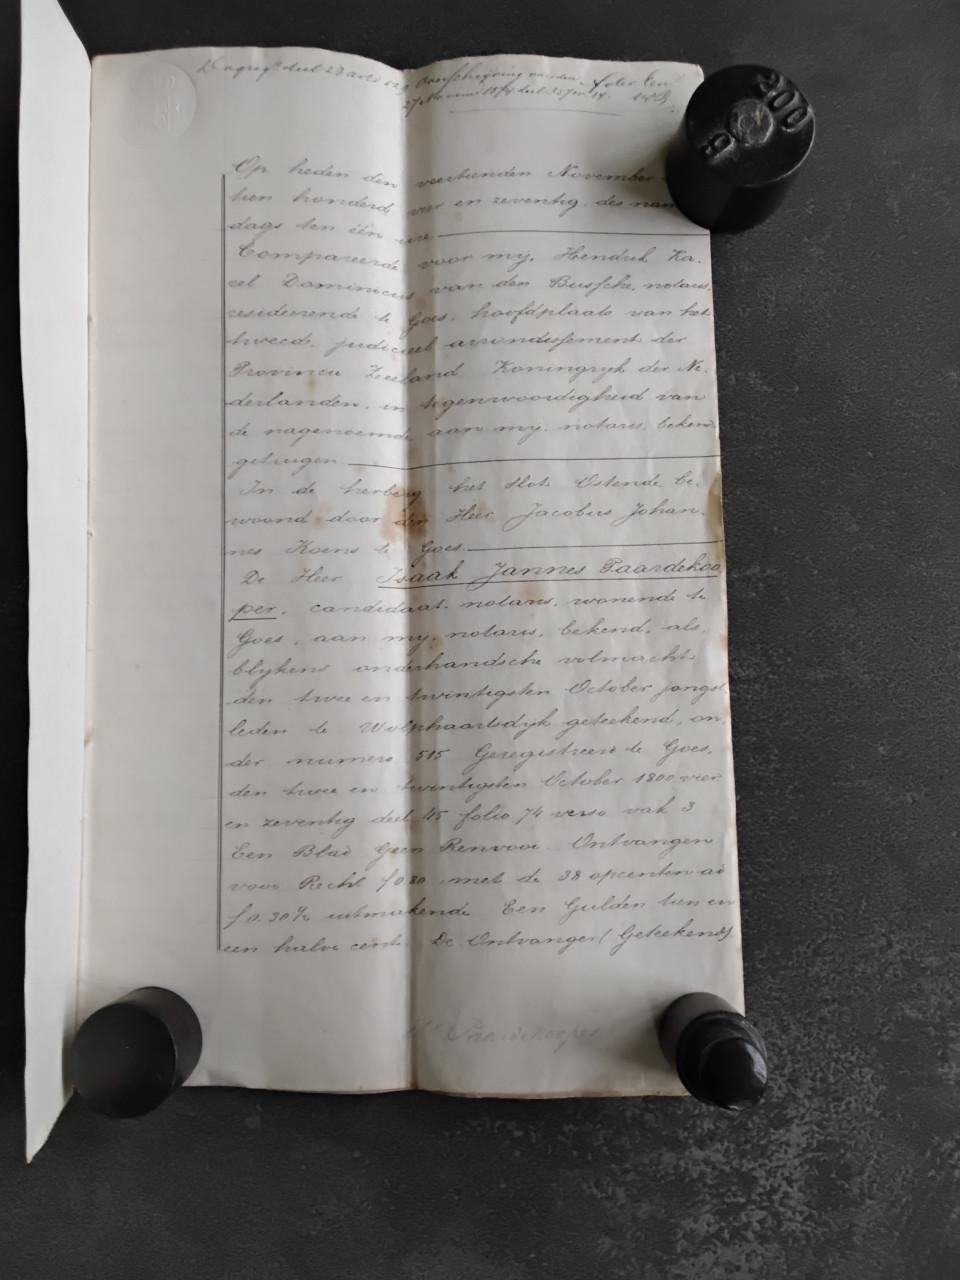 deel 23 Overschrijving folio Een
27 November 1874 deel
Op heden den veertienden November
tien honderd vier en zeventig. des nam
dags ten één ure.
Compareerde voor my, Hendrik Ka-
rel Dominicus van den Bussche, notaris,
resideerende te Goes, hoofdplaats van het
tweede judicieel arrondissement der
Provincie Zeeland Koningryk der Ne-
derlanden, in tegenwoordigheid van
de nagenoemde aan my, notaris, bekende
getuigen
In de herberg het slot Ostende be-
woond door den Heer Jacobus Johan-
nes Koens te Goes.
De Heer Isaak Jannes Paardekoo
per, candidaat-notaris, wonende te
Goes, aan my, notaris, bekend, als,
blykens onderhandsche volmacht
den twee en twintigsten October jongst
leden te Wolphaartsdyk geteekend, on-
der numero 515 Geregistreerd te Goes,
den twee en twintigsten October 1800 vier
en zeventig deel 45 folio 74 verso vak 3
Een Blad Geen Renvooi Ontvangen
voor Recht f 0.80, met de 38 opcenten ad
f 0.30½ uitmakende Een Gulden tien en
een halve cent. De Ontvanger (Geteekend)
Paardekooper
200 g